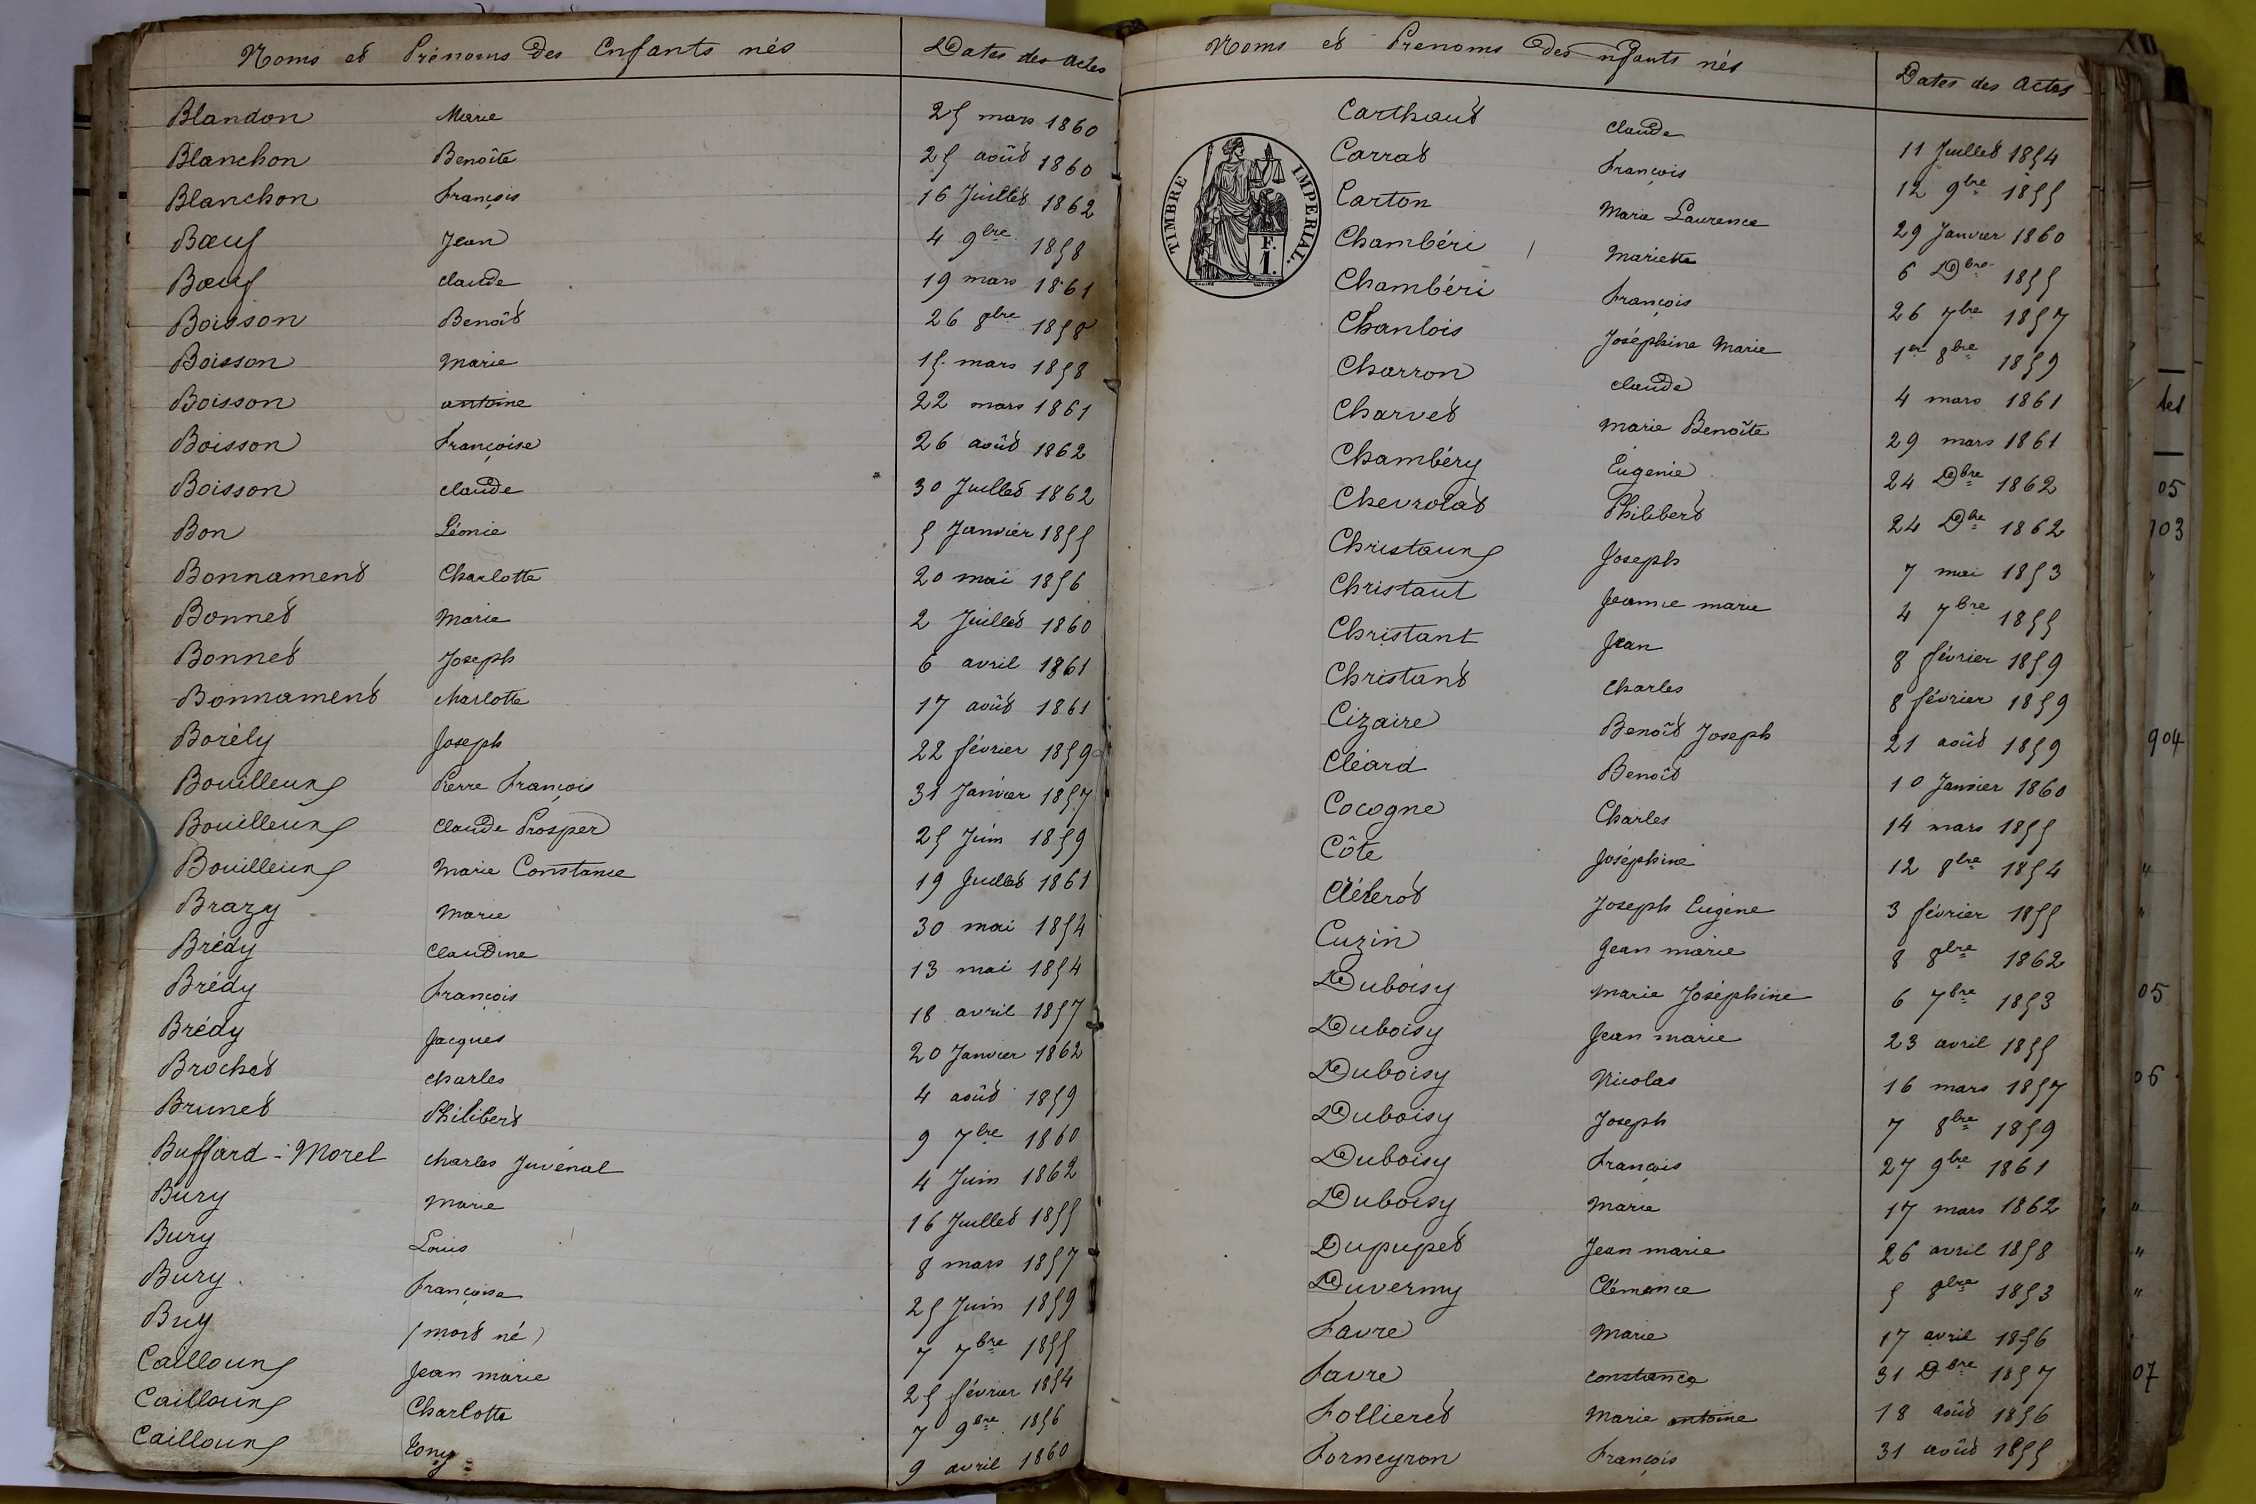 Noms et Prénoms Des Enfants nés Dates des actes
Blandon Marie 25 mars 1860
Blanchon Benoîte 25 août 1860
Blanchon François 16 Juillet 1862
Bœuf Jean 4 9bre 1858
Bœuf claude 19 mars 1861
Boisson Benoît 26 8bre 1858
Boisson Marie 15 mars 1858
Boisson antoine 22 mars 1861
Boisson Françoise 26 août 1862
Boisson claude 30 Juillet 1862
Bon Léonie 5 Janvier 1855
Bonnament Charlotte 20 mai 1856
Bonnet Marie 2 Juillet 1860
Bonnet Joseph 6 avril 1861
Bonnament charlotte 17 août 1861
Borély Joseph 22 février 1859
Bouilleux Pierre François 31 Janvier 1857
Bouilleux Claude Prosper 25 Juin 1859
Bouilleux Marie Constance 19 Juillet 1861
Brazy Marie 30 mai 1854
Brédy Claudine 13 mai 1854
Brédy François 18 avril 1857
Brédy Jacques 20 Janvier 1862
Brochet charles 4 août 1859
Brunet Philibert 9 7bre 1860
Buffard-Morel charles Juvénal 4 Juin 1862
Bury Marie 16 Juillet 1855
Bury Louis 8 mars 1857
Bury Françoise 25 Juin 1859
Buy (mort né) 7 7bre 1855
Cailloux Jean marie 25 février 1854
Cailloux Charlotte 7 9bre 1856
Cailloux Tony 9 avril 1860
Noms et Prenoms Des nfants nés Dates des Actes
TIMBRE IMPERIAL.
F.
1.
Carthaut claude 11 Juillet 1854
Carrat François 12 9bre 1855
Carton Marie Laurence 29 Janvier 1860
Chambéri Mariette 6 Dbre 1855
Chambéri François 26 7bre 1857
Chanlois Joséphine Marie 1er 8bre 1859
Charron claude 4 mars 1861
Charvet Marie Benoîte 29 mars 1861
Chambéry Eugenie 24 Dbre 1862
Chevrolat Philibert 24 Dbre 1862
Christaux Joseph 7 mai 1853
Christaut Jeanne marie 4 7bre 1855
Christant Jean 8 février 1859
Christant Charles 8 février 1859
Cizaire Benoît Joseph 21 août 1859
Cléard Benoît 10 Janvier 1860
Cocogne Charles 14 mars 1855
Côte Joséphine 12 8bre 1854
Joseph Eugène 3 février 1855
Cuzin Jean marie 8 8bre 1862
Duboisy Marie Joséphine 6 7bre 1853
Duboisy Jean marie 23 avril 1855
Duboisy Nicolas 16 mars 1857
Duboisy Joseph 7 8bre 1859
Duboisy François 27 9bre 1861
Duboisy Marie 17 mars 1862
Dupupet Jean marie 26 avril 1858
Duvermy Clémence 5 8bre 1853
Favre Marie 17 avril 1856
Favre constance 31 Dbre 1857
Follieret Marie antoine 18 août 1856
Forneyron François 31 août 1855
05
903
904
05
06
07